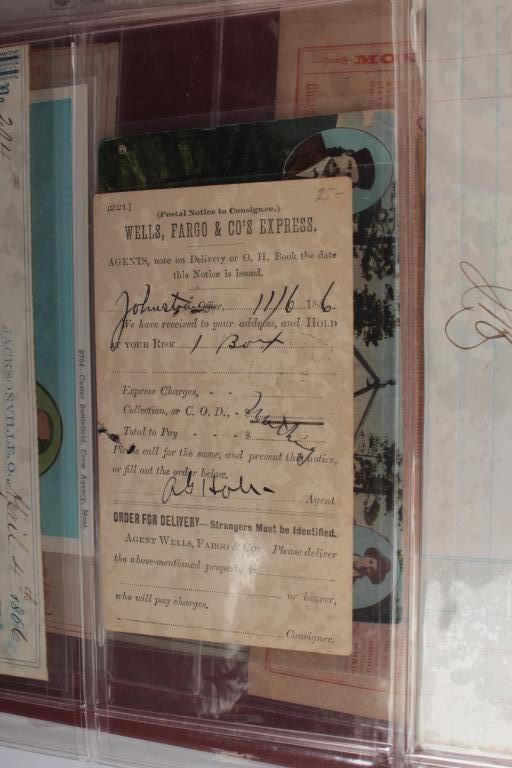 25-
[221.]
(Postal Notice to Consignee.)
WELLS, FARGO & CO'S EXPRESS.
AGENTS, note on Delivery or O. H. Book the date
this Notice is issued.
Office, 11/6 186
We have received to your address, and HOLD
AT YOUR RISK 1 Box
Express Charges, - -
Collection, or C. O. D., -
Total to Pay - - - $
Please call for the same, and present this notice,
or fill out the order below.
Agent
ORDER FOR DELIVERY—Strangers Must be Identified.
AGENT WELLS, FARGO & CO: Please deliver
the above-mentioned property to
or bearer,
who will pay charges.
Consignee.
JACKSONVILLE, O.
April 4th 1866
No 204
Custer Battlefield, Crow Agency, Mont.
MOS